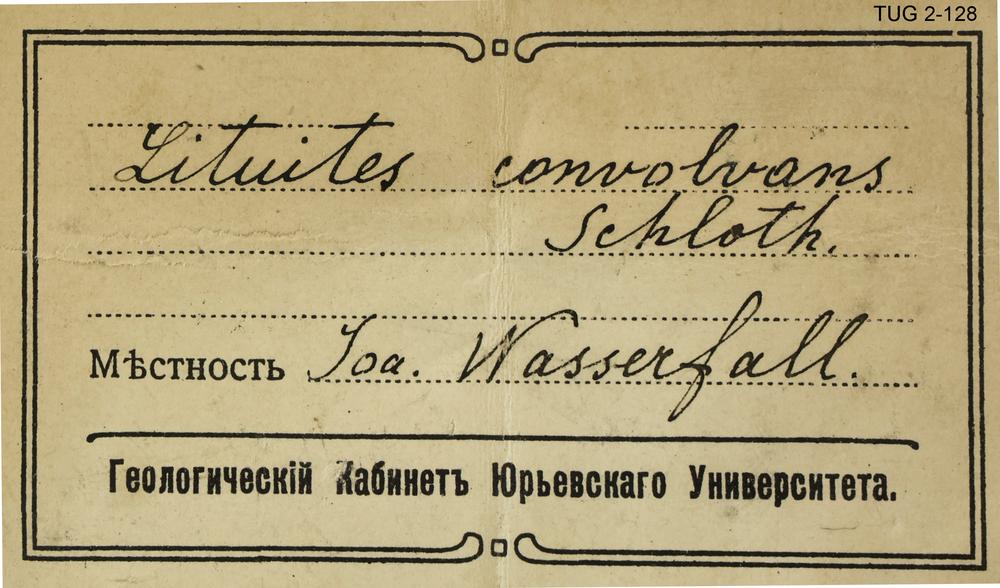 TUG 2-128
Lituites convolvans
Schloth.
Мѣстность Joa. Wasserfall.
Геологическій Кабинетъ Юрьевскаго Университета.